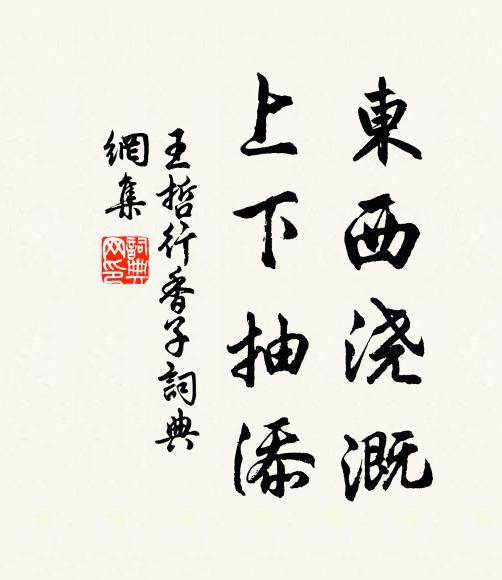 東西浇溉
上下抽添
王哲行香子詞典
網集
詞典
网印